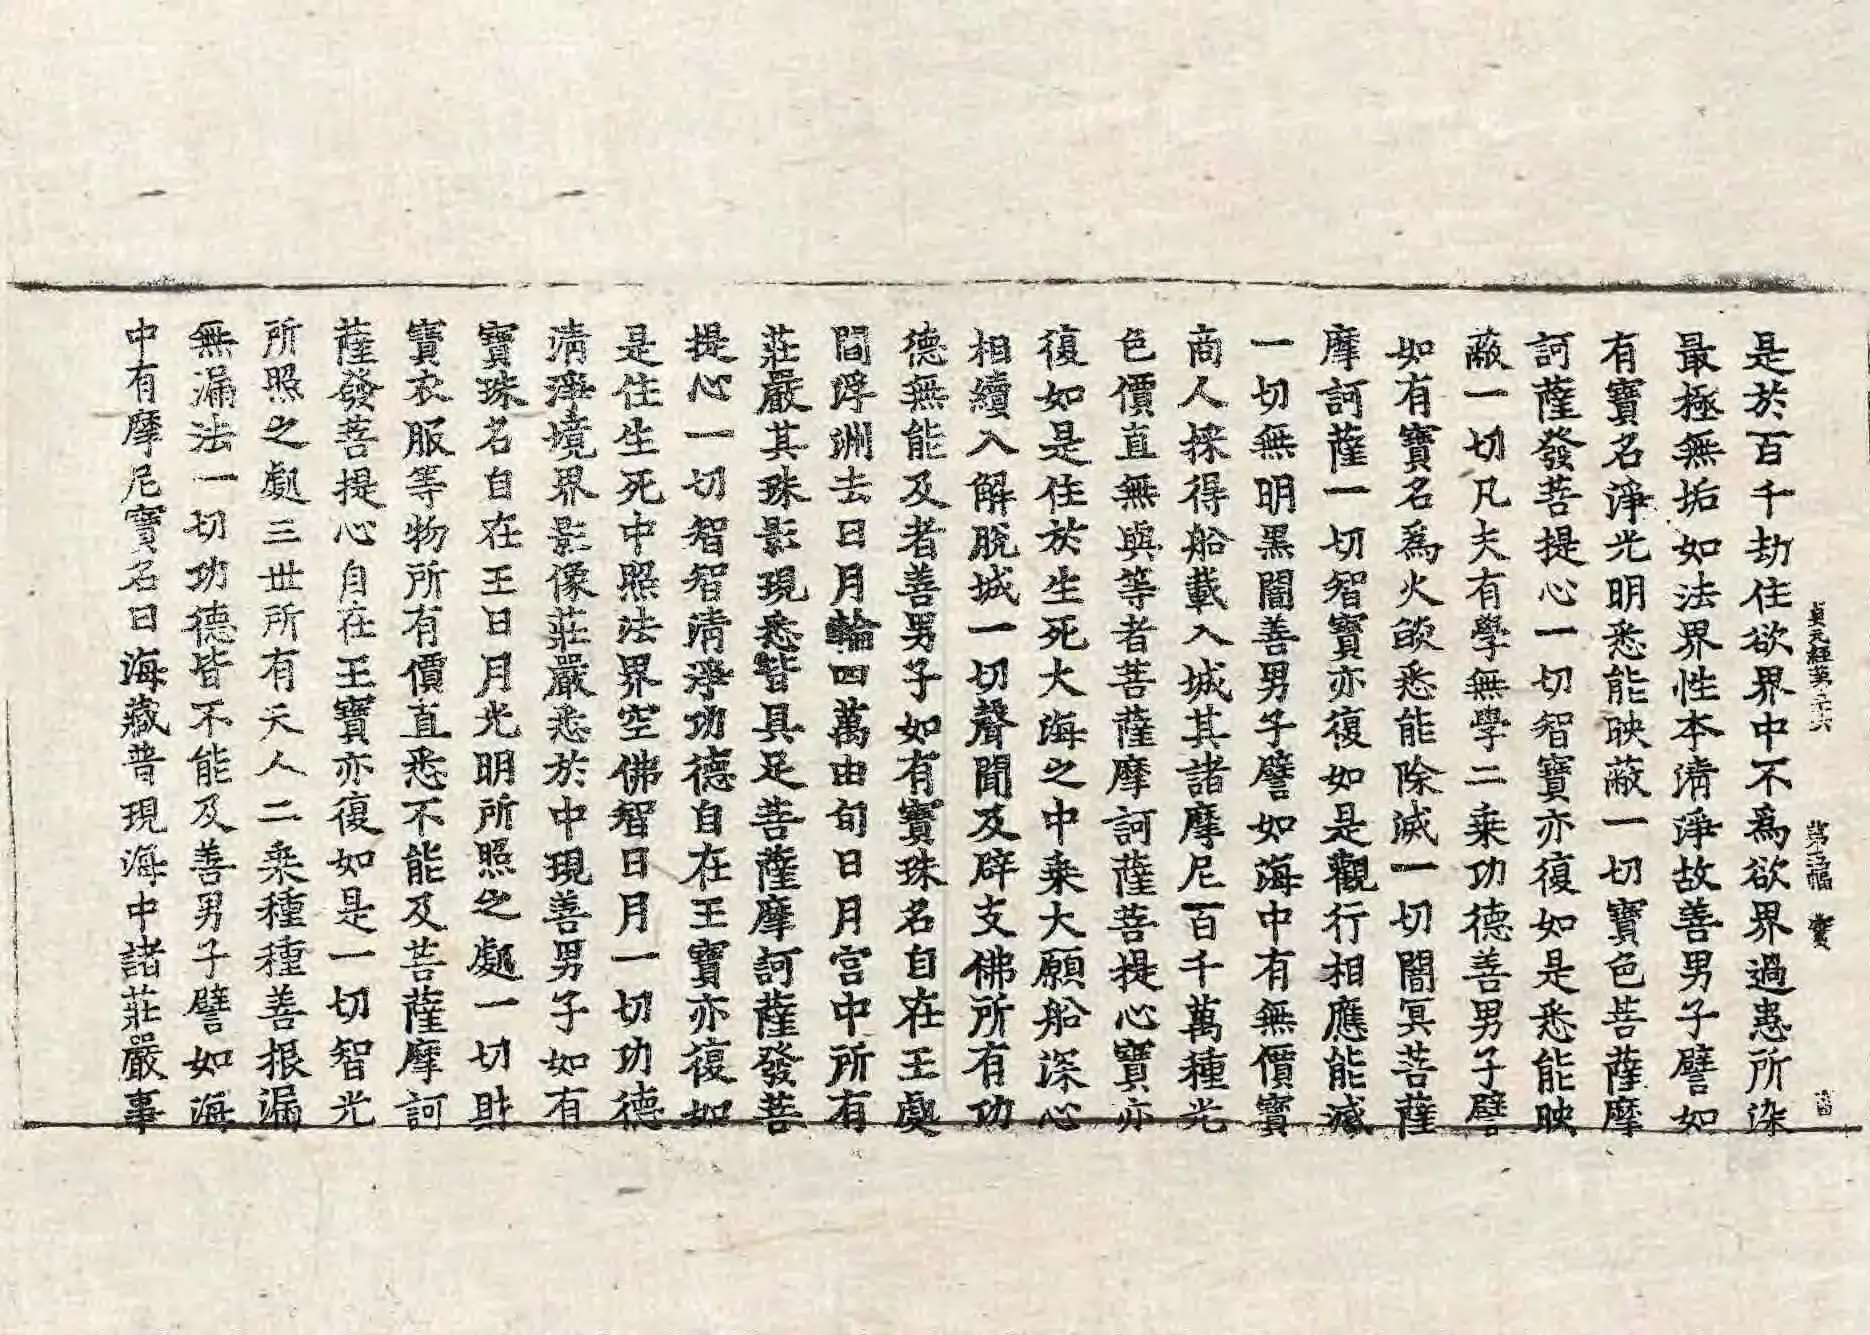 貞元經第三十六 第三幅 賓
是於百千劫住欲界中不為欲界過患所染
最極無垢如法界性本清淨故善男子譬如
有寶名淨光明悉能映蔽一切寶色菩薩摩
訶薩發菩提心一切智寶亦復如是悉能映
蔽一切凡夫有學無學二乘功德善男子譬
如有寶名為火燄悉能除滅一切闇冥菩薩
摩訶薩一切智寶亦復如是觀行相應能滅
一切無明黑闇善男子譬如海中有無價寶
商人採得船載入城其諸摩尼百千萬種光
色價直無與等者菩薩摩訶薩菩提心寶亦
復如是住於生死大海之中乘大願船深心
相續入解脫城一切聲聞及辟支佛所有功
德無能及者善男子如有寶珠名自在王處
閻浮洲去日月輪四萬由旬日月宮中所有
莊嚴其珠影現悉皆具足菩薩摩訶薩發菩
提心一切智智清淨功德自在王寶亦復如
是住生死中照法界空佛智日月一切功德
清淨境界影像莊嚴悉於中現善男子如有
寶珠名自在王日月光明所照之處一切財
寶衣服等物所有價直悉不能及菩薩摩訶
薩發菩提心自在王寶亦復如是一切智光
所照之處三世所有天人二乘種種善根漏
無漏法一切功德皆不能及善男子譬如海
中有摩尼寶名曰海藏普現海中諸莊嚴事